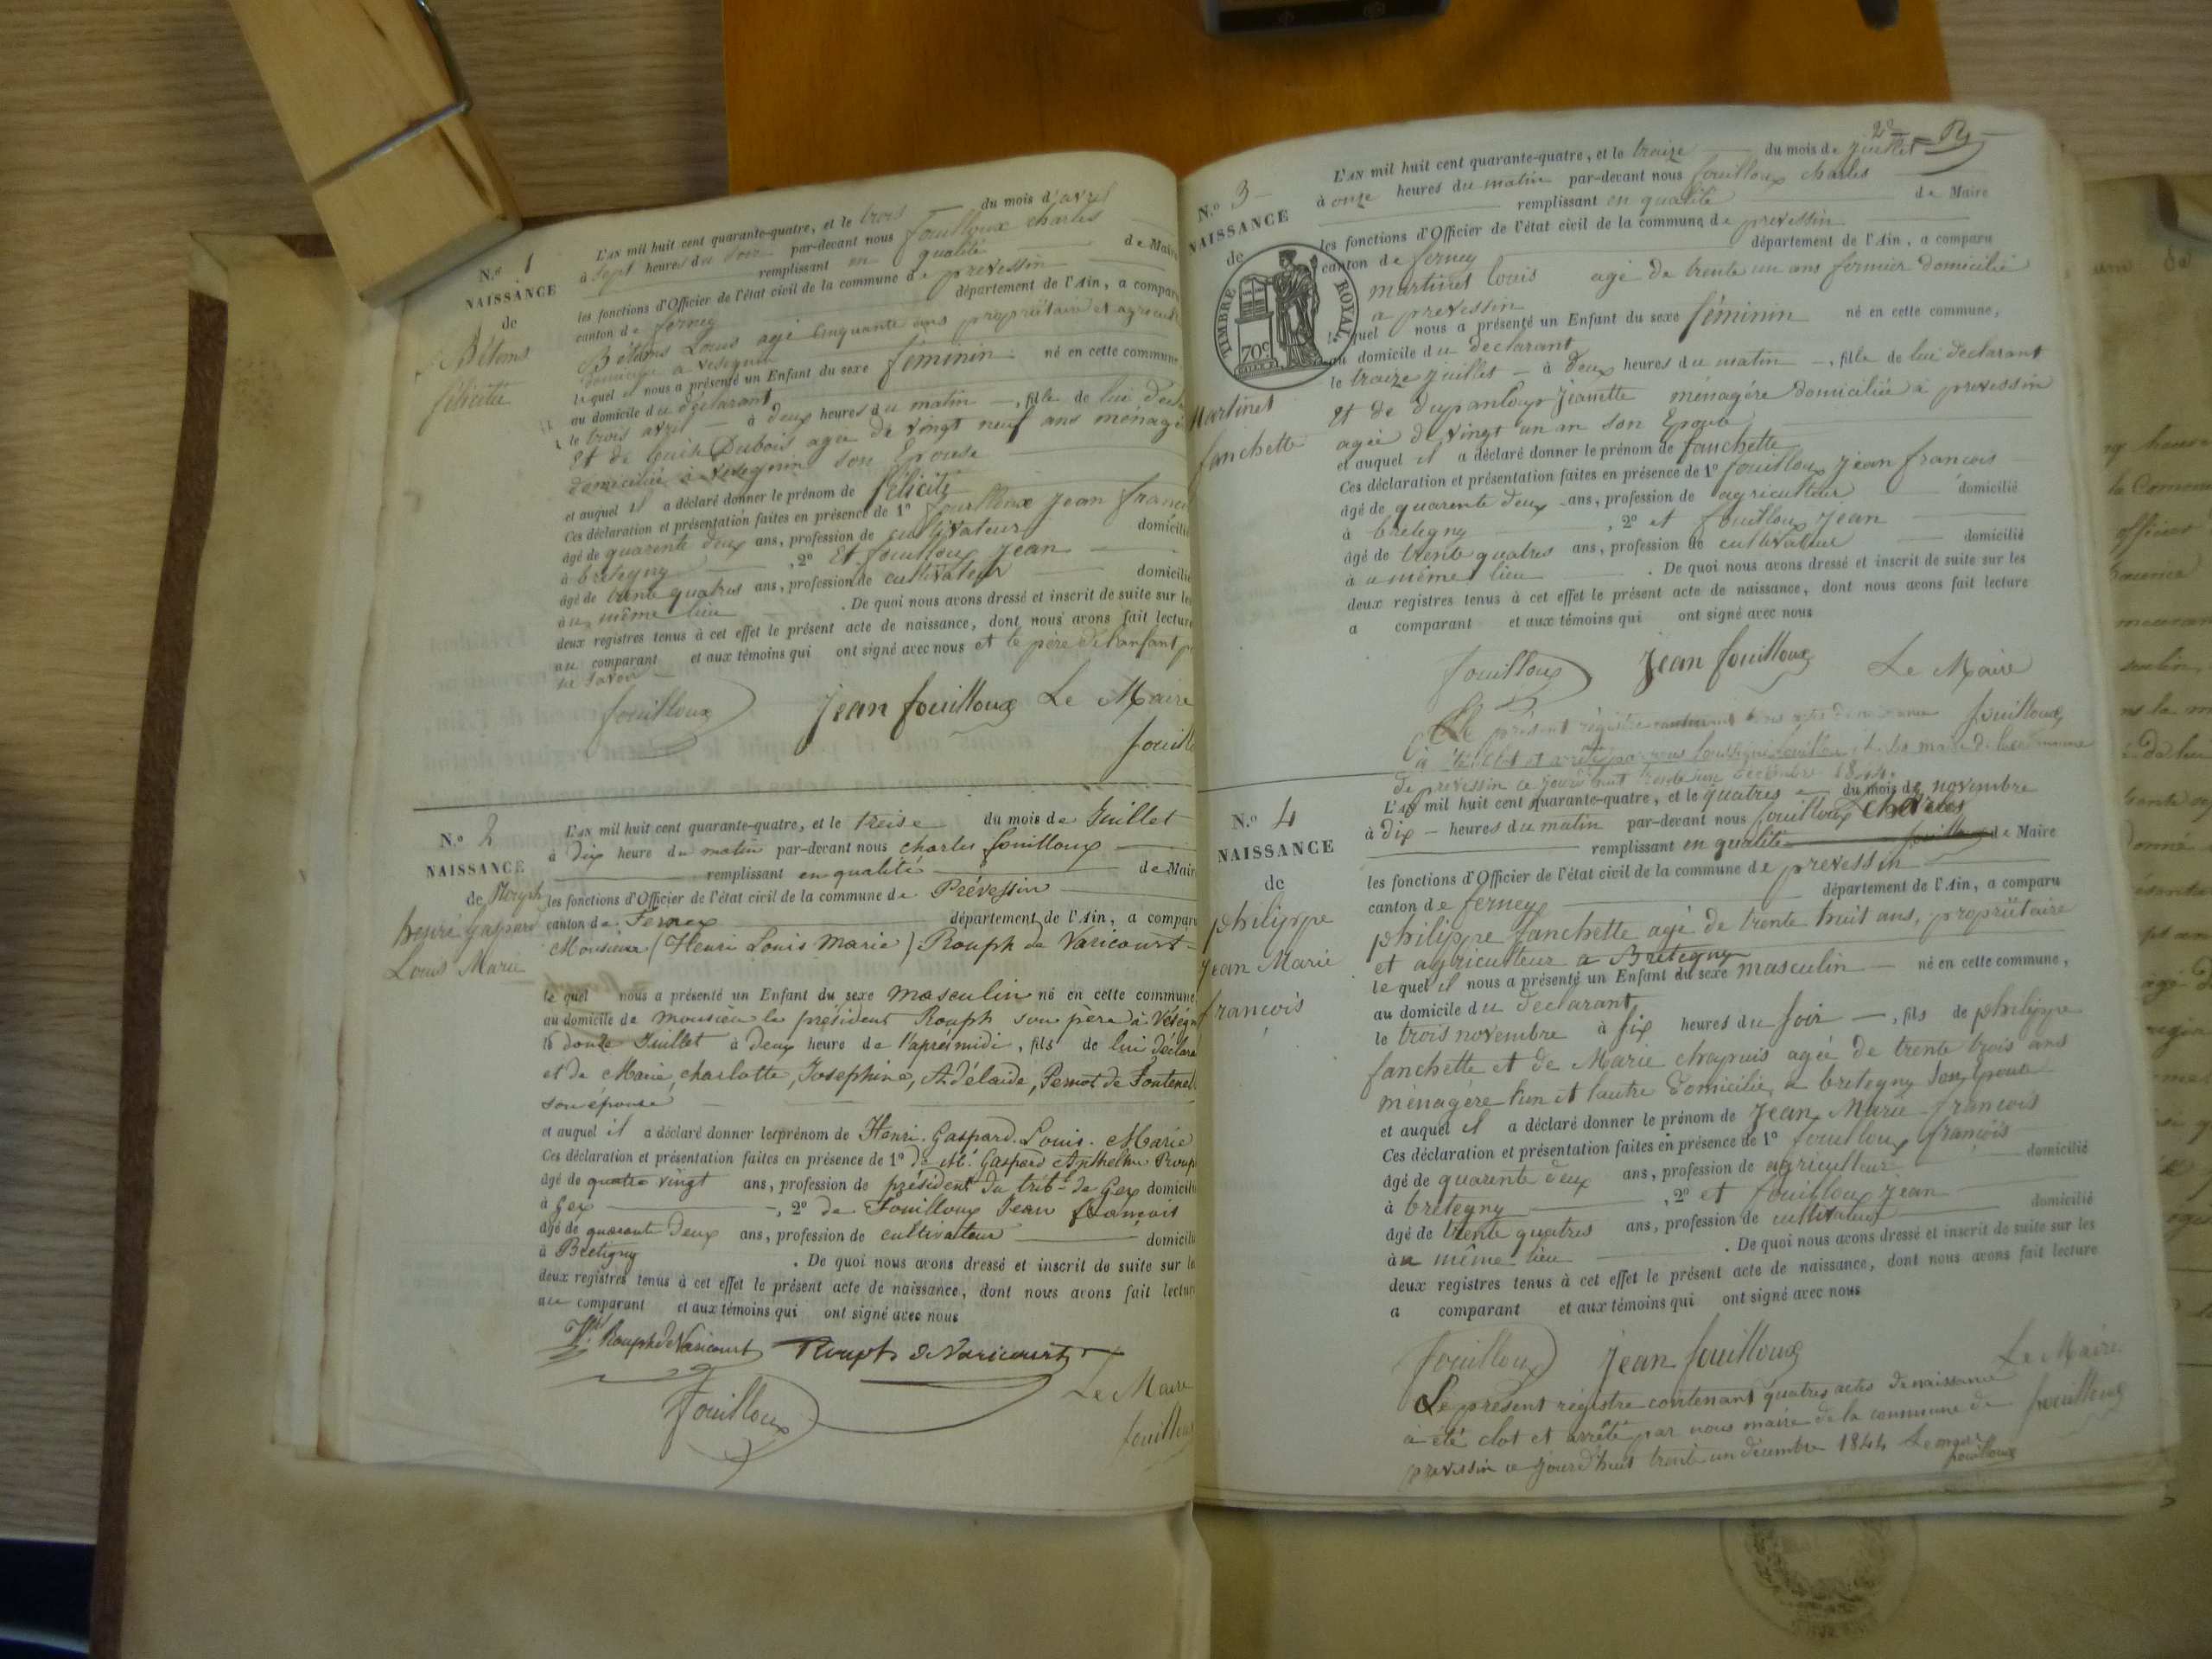 N.º 1
NAISSANCE
de
Bétems
félicité
L'AN mil huit cent quarante-quatre, et le trois du mois d'avril
à sept heures du soir par-devant nous fouilloux charles
remplissant en qualité de Maire
les fonctions d'Officier de l'état civil de la commune de prevessin
canton de ferney département de l'Ain, a comparu
Bétems Louis agé cinquante ans propriétaire et agricult
domicilié a vesegnin
lequel il nous a présenté un Enfant du sexe féminin né en cette commune
au domicile du déclarant
le trois avril à deux heures du matin, fille de lui decla
et de Dubois agée de vingt neuf ans ménagè
domiciliée à vesegnin son Epouse
et auquel il a déclaré donner le prénom de félicité
Ces déclaration et présentation faites en présence de 1º fouilloux jean franco
âgé de quarente deux ans, profession de cultivateur domicilié
à bretegny, 2º Et fouilloux jean
âgé de trente quatres ans, profession de cultivateur domicilié
à u même lieu. De quoi nous avons dressé et inscrit de suite sur les
deux registres tenus à cet effet le présent acte de naissance, dont nous avons fait lecture
au comparant et aux témoins qui ont signé avec nous et le père de l'anfant
ne savoir
fouilloux jean fouilloux Le Maire
fouill
N.º 2
NAISSANCE
de Rouph
henri Gaspard
Louis Marie
L'AN mil huit cent quarante-quatre, et le treise du mois de Juillet
à dix heure du matin par-devant nous charles fouilloux
remplissant en qualité de Mair
les fonctions d'Officier de l'état civil de la commune de Prévessin
canton de Ferney département de l'Ain, a comparu
Monsieur (Henri Louis Marie) Rouph de Varicourt
le quel nous a présenté un Enfant du sexe masculin né en cette commune
au domicile de monsieur le président Rouph son père à Véségn
le douze Juillet à deux heure de l'après midi, fils de lui déclara
et de Marie, charlotte, Josephine, Adélaide, Pernot de Fontenel
son épouse
et auquel il a déclaré donner les prénom de Henri. Gaspard. Louis. Marie
Ces déclaration et présentation faites en présence de 1º de Mr. Gaspard Anthelme Roup
âgé de quatre vingt ans, profession de président du tribal de Gex domicili
à Gex, 2º de Fouilloux Jean françois
âgé de quarante deux ans, profession de cultivateur domicili
à Bretigny. De quoi nous avons dressé et inscrit de suite sur le
deux registres tenus à cet effet le présent acte de naissance, dont nous avons fait lectur
au comparant et aux témoins qui ont signé avec nous
Rouph de Varicourt Rouph de Varicourt
Le Maire
fouilloux fouilloux
2e
N.º 3
NAISSANCE
de
TIMBRE ROYAL
70c
Martinet
fanchette
L'AN mil huit cent quarante-quatre, et le traize du mois de juillet
à onze heures du matin par-devant nous fouilloux charles
remplissant en qualité de Maire
les fonctions d'Officier de l'état civil de la commune de prevessin
canton de ferney département de l'Ain, a comparu
martinet louis agé de trente un ans fermier domicilié
a prevessin
le quel nous a présenté un Enfant du sexe féminin né en cette commune,
au domicile du declarant
le traize juillet à deux heures du matin, fille de lui declarant
et de dupanloup jeanette ménagére domiciliée a prevessin
agée de vingt un an son Epouse
et auquel il a déclaré donner le prénom de fanchette
Ces déclaration et présentation faites en présence de 1º fouilloux jean francois
âgé de quarente deux ans, profession de agriculteur domicilié
à bretegny, 2º et fouilloux jean
âgé de trente quatres ans, profession de cultivateur domicilié
à u même lieu. De quoi nous avons dressé et inscrit de suite sur les
deux registres tenus à cet effet le présent acte de naissance, dont nous avons fait lecture
a comparant et aux témoins qui ont signé avec nous
fouilloux jean fouilloux Le Maire
Le présent régistre contenant trois actes de naissance fouilloux
a été clot et arrêté par nous soussigné fouilloux ch. Le maire de la commune
de prevessin ce jourd'huit trente un decembre 1844.
N.º 4
NAISSANCE
de
philippe
jean Marie
francois
L'AN mil huit cent quarante-quatre, et le quatres du mois de novembre
à dix heures du matin par-devant nous fouilloux charles
remplissant en qualité de Maire
les fonctions d'Officier de l'état civil de la commune de prevessin
canton de ferney département de l'Ain, a comparu
philippe fanchette agé de trente huit ans, propriétaire
et agriculteur a Bretegny
le quel il nous a présenté un Enfant du sexe masculin né en cette commune,
au domicile du declarant
le trois novembre à six heures du soir, fils de philippe
fanchette et de Marie chapuis agée de trente trois ans
ménagére l'un et l'autre domicilie a bretegny son Epouse
et auquel il a déclaré donner le prénom de jean Marie francois
Ces déclaration et présentation faites en présence de 1º fouilloux françois
âgé de quarente deux ans, profession de agriculteur domicilié
à bretegny, 2º et fouilloux jean
âgé de trente quatres ans, profession de cultivateur domicilié
à u même lieu. De quoi nous avons dressé et inscrit de suite sur les
deux registres tenus à cet effet le présent acte de naissance, dont nous avons fait lecture
a comparant et aux témoins qui ont signé avec nous
fouilloux jean fouilloux Le Maire
Le présent régistre contenant quatres actes de naissance fouilloux
a été clot et arrêté par nous maire de la commune de
prevessin ce jourd'huit trente un décembre 1844 Le maire
fouilloux